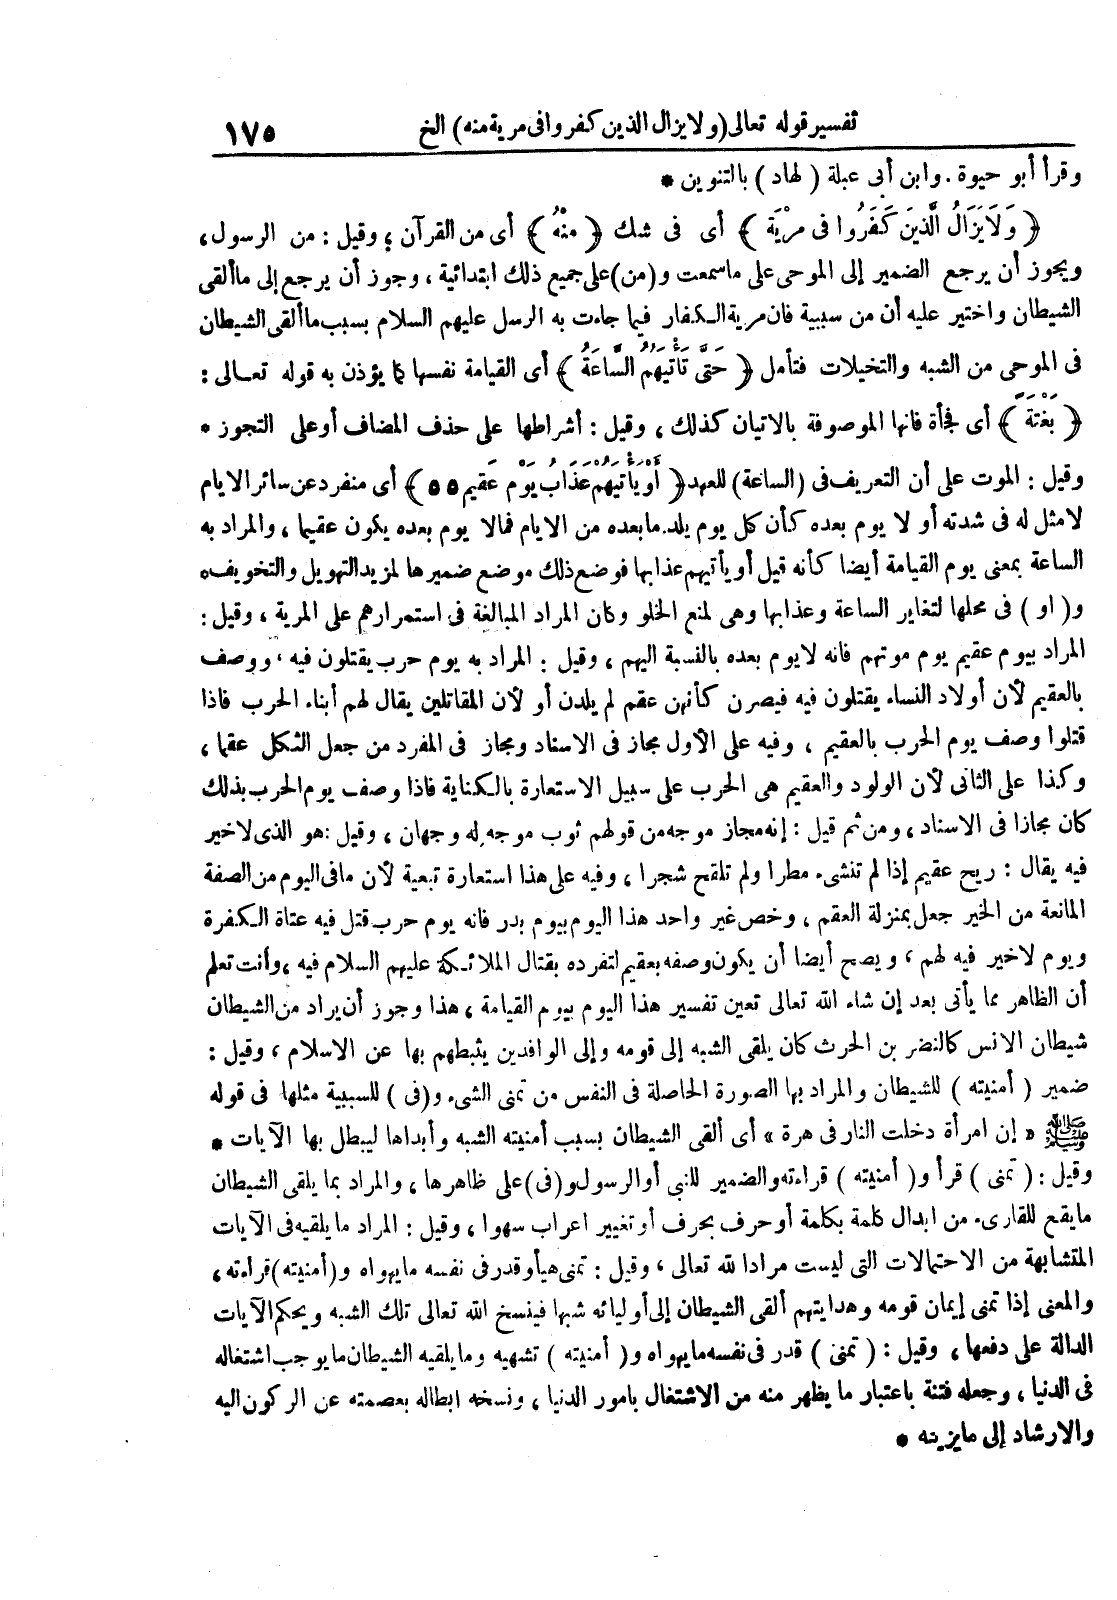 تفسير قوله تعالى (ولا يزال الذين كفروا فى مرية منه) الخ ١٧٥
وقرأ أبو حيوة . وابن أبى عبلة ( لهاد ) بالتنوين *
﴿ وَلَا يَزَالُ الَّذينَ كَفَرُوا فى مرْيَة ﴾ أى فى شك ﴿ منْهُ ﴾ أى من القرآن ؛ وقيل : من الرسول ،
ويجوز أن يرجع الضمير إلى الموحى على ما سمعت و (من) على جميع ذلك ابتدائية ، وجوز أن يرجع إلى ما ألقى
الشيطان واختير عليه أن من سببية فان مرية الكفار فيما جاءت به الرسل عليهم السلام بسبب ما ألقى الشيطان
فى الموحى من الشبه والتخيلات فتأمل ﴿ حَتَّى تَأْتيَهُمُ السَّاعَةُ ﴾ أى القيامة نفسها كما يؤذن به قوله تعالى :
﴿ بَغْتَةً ﴾ أى فجأة فانها الموصوفة بالاتيان كذلك ، وقيل : أشراطها على حذف المضاف أو على التجوز *
وقيل : الموت على أن التعريف فى (الساعة) للعهد ﴿ أَوْ يَأْتيَهُمْ عَذَابُ يَوْم عَقيم ٥٥ ﴾ أى منفرد عن سائر الايام
لا مثل له فى شدته أو لا يوم بعده كأن كل يوم يلد ما بعده من الايام فمالا يوم بعده يكون عقيما ، والمراد به
الساعة بمعنى يوم القيامة أيضا كأنه قيل أو يأتيهم عذابها فوضع ذلك موضع ضميرها لمزيد التهويل والتخويف *
و ( او ) فى محلها لتغاير الساعة وعذابها وهى لمنع الخلو وكان المراد المبالغة فى استمرارهم على المرية ، وقيل :
المراد بيوم عقيم يوم موتهم فانه لا يوم بعده بالنسبة اليهم ، وقيل : المراد به يوم حرب يقتلون فيه ، ووصف
بالعقيم لأن أولاد النساء يقتلون فيه فيصرن كأنهن عقم لم يلدن أو لأن المقاتلين يقال لهم أبناء الحرب فاذا
قتلوا وصف يوم الحرب بالعقيم ، وفيه على الأول مجاز فى الاسناد ومجاز فى المفرد من جعل الثكل عقما ،
وكذا على الثانى لأن الولود والعقيم هى الحرب على سبيل الاستعارة بالكناية فاذا وصف يوم الحرب بذلك
كان مجازا فى الاسناد ، ومن ثم قيل : إنه مجاز موجه من قولهم ثوب موجه له وجهان ، وقيل : هو الذى لا خير
فيه يقال : ريح عقيم إذا لم تنشىء مطرا ولم تلقح شجرا ، وفيه على هذا استعارة تبعية لأن ما فى اليوم من الصفة
المانعة من الخير جعل بمنزلة العقم ، وخص غير واحد هذا اليوم بيوم بدر فانه يوم حرب قتل فيه عتاة الكفرة
ويوم لا خير فيه لهم ، ويصح أيضا أن يكون وصفه بعقيم لتفرده بقتال الملائكة عليهم السلام فيه ، وأنت تعلم
أن الظاهر مما يأتى بعد إن شاء الله تعالى تعين تفسير هذا اليوم بيوم القيامة ، هذا وجوز أن يراد من الشيطان
شيطان الانس كالنضر بن الحرث كان يلقى الشبه إلى قومه وإلى الوافدين يثبطهم بها عن الاسلام ، وقيل :
ضمير ( أمنيته ) للشيطان والمراد بها الصورة الحاصلة فى النفس من تمنى الشىء و (فى ) للسببية مثلها فى قوله
ﷺ « إن امرأة دخلت النار فى هرة » أى ألقى الشيطان بسبب أمنيته الشبه وأبداها ليبطل بها الآيات *
وقيل : ( تمنى ) قرأ و( أمنيته ) قراءته والضمير للنبى أو الرسول و (فى) على ظاهرها ، والمراد بما يلقى الشيطان
ما يقع للقارىء من ابدال كلمة بكلمة أو حرف بحرف أو تغيير اعراب سهوا ، وقيل : المراد ما يلقيه فى الآيات
المتشابهة من الاحتمالات التى ليست مرادا لله تعالى ، وقيل : تمنى هيأ وقدر فى نفسه ما يهواه و (أمنيته) قراءته ،
والمعنى إذا تمنى إيمان قومه وهدايتهم ألقى الشيطان إلى أوليائه شبها فينسخ الله تعالى تلك الشبه ويحكم الآيات
الدالة على دفعها ، وقيل : ( تمنى ) قدر فى نفسه ما يهواه و( أمنيته ) تشهيه وما يلقيه الشيطان ما يوجب اشتغاله
فى الدنيا ، وجعله فتنة باعتبار ما يظهر منه من الاشتغال بامور الدنيا ، ونسخه ابطاله بعصمته عن الركون اليه
والارشاد إلى ما يزينه *